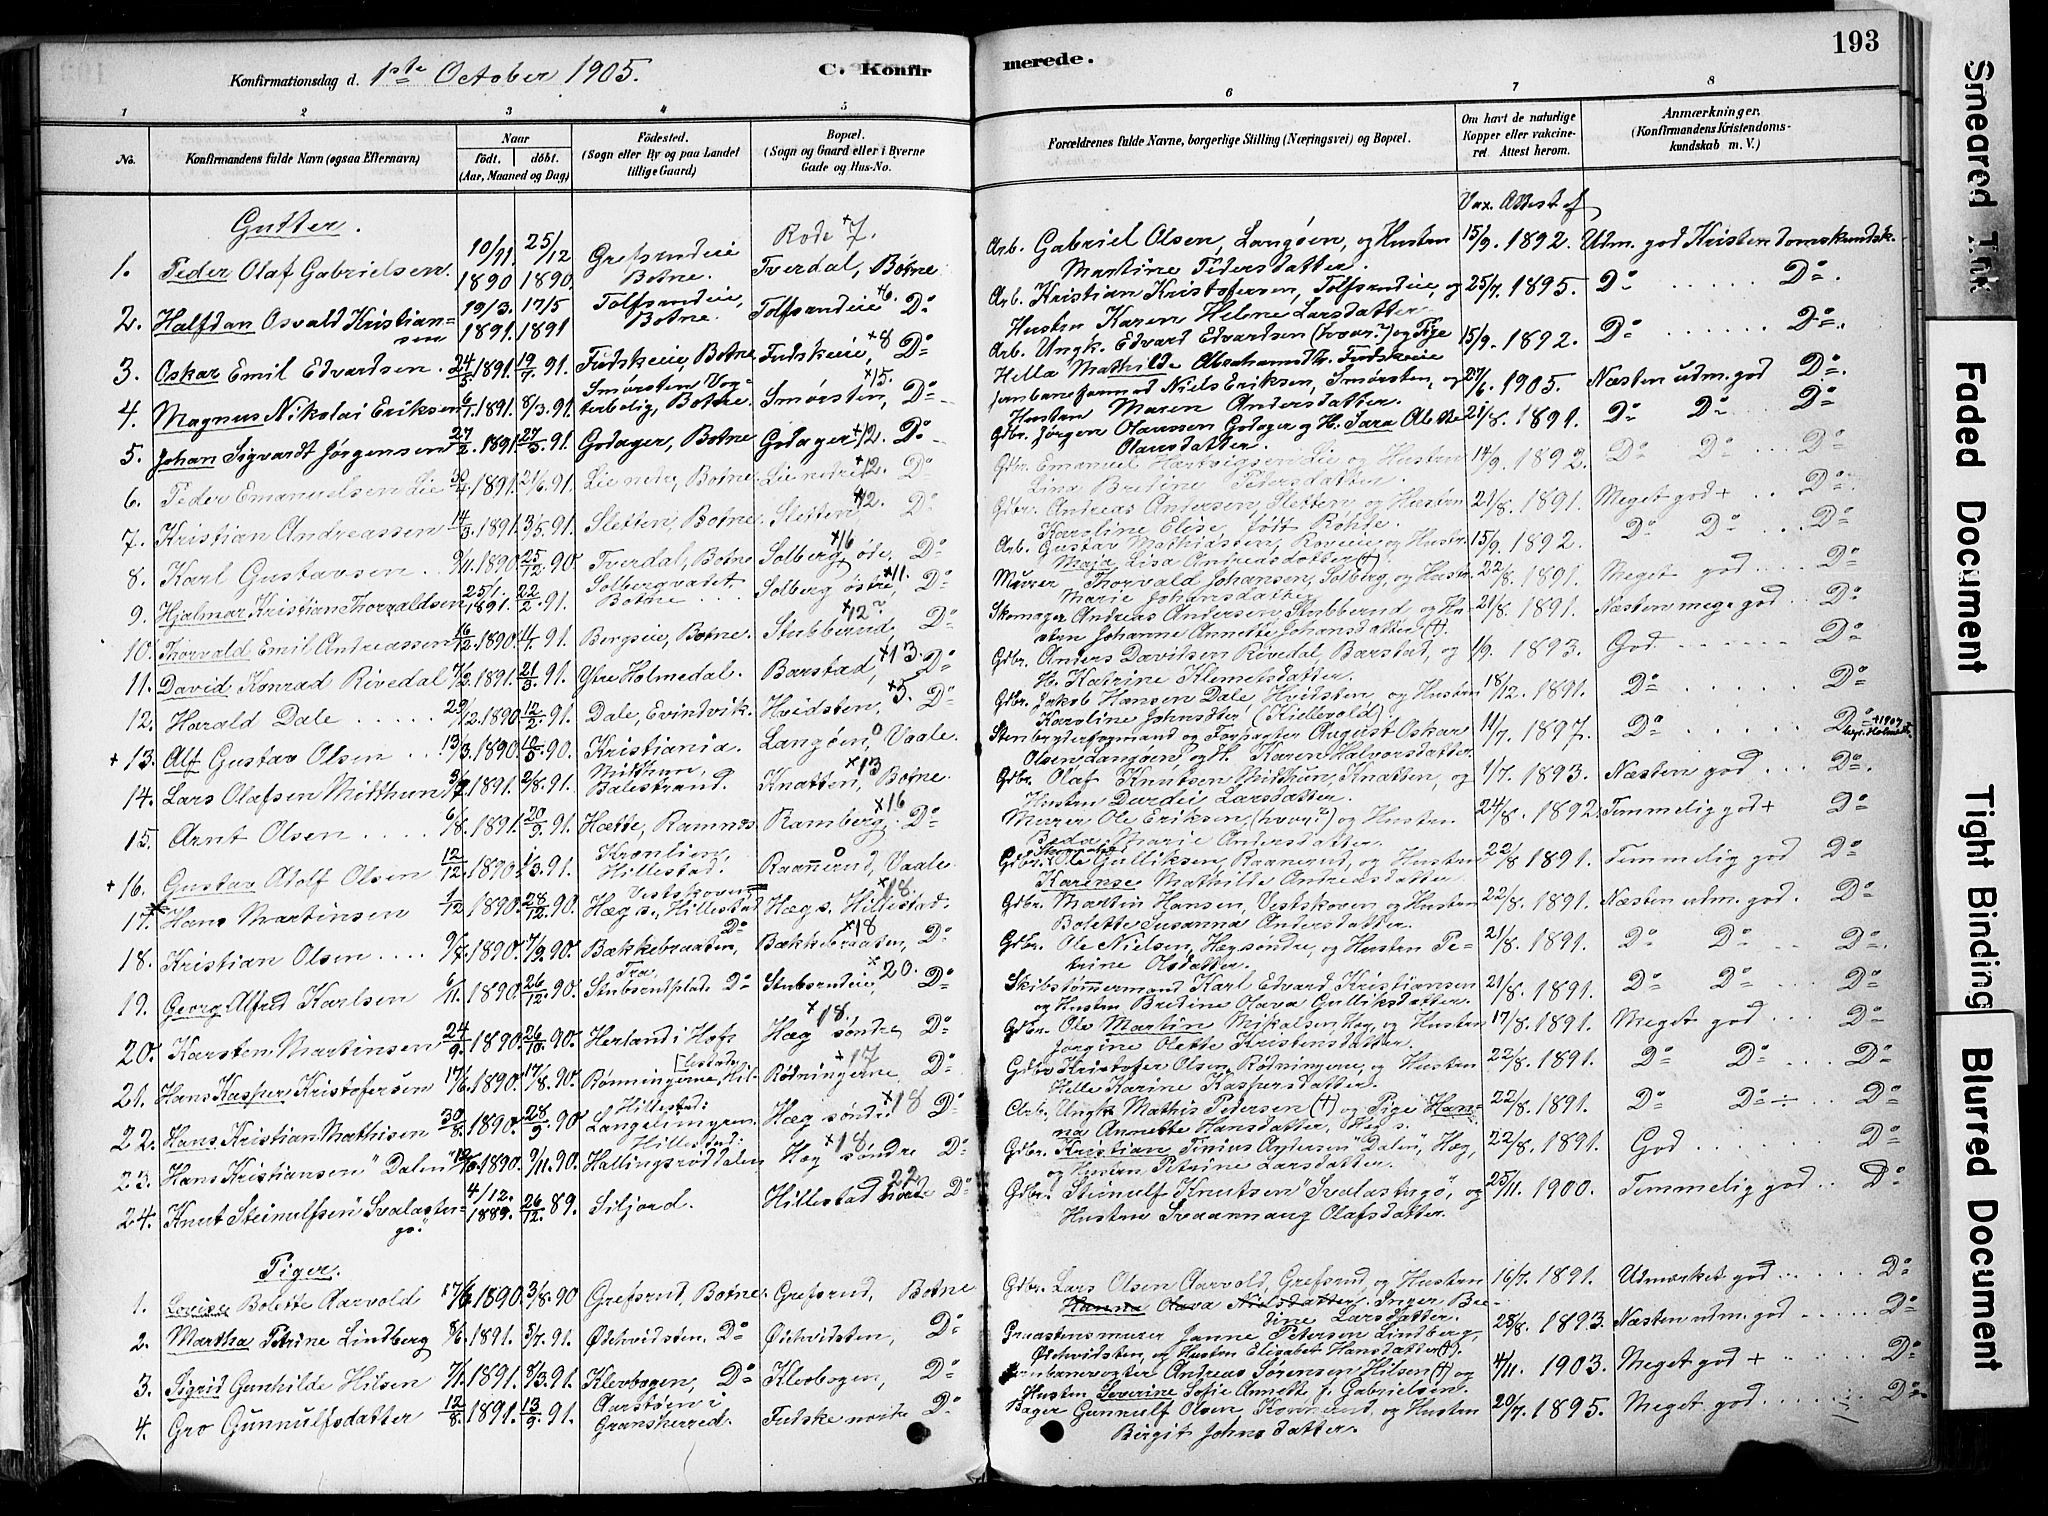 193
Konfirmationsdag d. 1ste October 1905. C. Konfirmerede.
1 2 3 4 5 6 7 8
No. Konfirmandens fulde Navn (ogsaa Efternavn) Naar født. døbt. (Aar, Maaned og Dag) Fødested. (Sogn eller By og paa Landet tillige Gaard) Bopæl. (Sogn og Gaard eller i Byerne Gade og Hus-No. Forældrenes fulde Navne, borgerlige Stilling (Næringsvei) og Bopæl. Om havt de naturlige Kopper eller vakcineret. Attest herom. Anmærkninger. (Konfirmandens Kristendomskundskab m. V.)
Gutter. Vax. Attest af
1. Peder Olaf Gabrielsen. 10/11 1890 25/12 1890 Grefsrudeie Botne. Rode +7. Tverdal, Botne Arb. Gabriel Olsen, Langøen, og Hustru Martine Pedersdatter. 15/9. 1892. Udm. god Kristendomskundsk.
2. Halfdan Osvald Kristiansen 19/3. 1891. 17/5 1891 Tolfsrudeie, Botne. Tolfsrudeie +6. Do Arb. Kristian Kristofersen, Tolfsrudeie, og Hustru Karen Helene Larsdatter. 25/7. 1895. Do Do
3. Oskar Emil Edvardsen. 24/5 1891. 19/7. 91. Fudskeie, Botne Fudskeie, +8 Do Arb. Ungk. Edvard Edvardsen (hvor?) og Pige Hella Mathilde Abrahamsdtr. Fudskeie 15/9. 1892. Do Do
4. Magnus Nikolai Eriksen 6/1. 1891. 8/3. 91. Smørsten Vogterbolig, Botne. Smørsten, +15. Do Jernbaneformand Niels Eriksen, Smørsten, og Hustru Maren Andersdatter. 27/6. 1905. Næsten udm. god Do
5. Johan Sigvardt Jørgensen 27/2. 1891. 27/3. 91. Godager, Botne Godager +12. Do Gdbr. Jørgen Olaussen Godager og H. Sara Olette Olausdatter. 21/8. 1891. Do Do Do
6. Peder Emanuelsen Lie 1891. 21/6. 91. Lie nedre, Botne. Lie nedre +12. Do Gdbr. Emanuel Hartvigsen Lie og Hustru Lina Bredine Pedersdatter. 14/9. 1892. Do Do Do
7. Kristian Andreassen 14/3. 1891. 3/5. 91. Sletten, Botne. Sletten +12. Do Gdbr. Andreas Andersen, Sletten, og Hustru Karoline Elise, født Rohde. 21/8. 1891. Meget god + Do
8. Karl Gustavsen 9/11. 1890. 25/12. 90. Tverdal, Botne Solberg øde, +16 Do Arb. Gustav Mathiassen, Roveie og Hustr. Maja Lisa Andreasdatter (+) 15/9. 1892. Do Do Do
9. Hjalmar Kristian Thorvaldsen 25/1. 1891. 22/2. 91. Solbergvadet, Botne Solberg østre, +11. Do Murer Thorvald Johansen, Solberg, og Hustr. Marie Johansdatter 22/8. 1891. Meget god Do
10. Thorvald Emil Andreassen 16/12. 1890. 4/1. 91. Bergseie, Botne. Stubberud, +12? Do Skomager Andreas Andersen, Stubberud og Hustru Johanne Annette Johansdatter (+). 21/8. 1891. Næsten meg. god Do
11. David Konrad Rivedal 7/2. 1891. 21/3. 91. Ytre Holmedal. Barstad, +13. Do Gdbr. Anders Davidsen Røvedal Barstad, og H. Katrine Klemetsdatter. 1/9. 1893. God Do
12. Harald Dale 29/12. 1890. 12/2. 91. Dale, Evindvik. Hvidsten, +5. Do Gdbr. Jakob Hansen Dale, Hvidsten, og Hustru Karoline Johnsdtr (Kiellevold) 18/12. 1891. Do Do
+ 13. Alf Gustav Olsen 13/3. 1890. 90. Kristiania. Langøen, o Vaale. Stenbryderformand og Forpagter August Oskar Olsen Langøen, og H. Karen Halvorsdatter. 11/7. 1897. Do Do
14. Lars Olafsen Mitthun 1891. 2/8. 91. Mitthun, Balestrand. Knatten, +13 Botne. Gdbr. Olaf Knutsen Mitthun, Knatten, og Hustru Durdei Larsdatter. 1/7. 1893. Næsten god Do
15. Arnt Olsen 6/8. 1891. 20/9. 91. Hætte, Ramnæs Ramberg. +16 Do Murer Ole Eriksen, (hvor?) og Hustru Beda Marie Andersdatter. 24/8. 1892. Temmelig god + Do
+ 16. Gustav Adolf Olsen 12/12. 1890. 1/3. 91. Kronlien, Hillestad. Raanerud, o Vaale Gdbr. Skomager Ole Gulliksen, Raanerud, og Hustru Karense Mathilde Andreasdatter. 22/8. 1891. Temmelig god Do
17. Hans Martinsen 1/12 1890. 28/12. 90. Vestskoven Hæg s., Hillestad Hæg s. +18. Hillestad. Gdbr. Martin Hansen, Vestskoven og Hustru Bolette Susanna Andersdatter. 22/8. 1891. Næsten udm. god. Do
18. Kristian Olsen 9/7. 1890. 7/9. 90. Bækkebraaten, Do Bækkebraaten, +18 Do Gdbr. Ole Nielsen, Hæg søndre, og Hustru Petrine Olsdatter. 21/8. 1891. Do Do Do
19. Georg Alfred Karlsen 6/11. 1890. 26/12. 90. Fra Stubsrudplads Do Stubsrudeie, +20. Do Skibstømmermand Karl Edvard Kristiansen og Hustru Bredine Olava Gulliksdatter. 21/8. 1891. Do Do Do
20. Karsten Martinsen 24/9. 1890. 26/10. 90. Herland i Hofs Hæg søndre +18. Do Gdbr. Ole Martin Mikalsen Hæg, og Hustru Jørgine Olette Kristensdatter. 17/8. 1891. Meget god Do
21. Hans Kasper Kristofersen 17/6. 1890. 17/8. 90. Rønningerne, Hillestad Rødningerne +17 Do Gdbr. Kristofer Olsen Rødningerne, og Hustru Helle Karine Kaspersdatter. 22/8. 1891. Do Do Do
22. Hans Kristian Mathisen 30/8. 1890. 28/9. 90. Hillestad: Langelimyren Hæg søndre +18 Do Arb. Ungk. Mathis Pedersen (+) og Pige Hanna Annette Hansdatter, Hæg s. 22/8. 1891. Do Do ÷ Do
23. Hans Kristiansen "Dalen" 1890. 9/11. 90. Hillestad: Hallingsrøddalen Hæg søndre +18 Do Gdbr. Kristian Tinius Andersen "Dalen", Hæg, og Hustru Petrine Larsdatter. 22/8. 1891. God Do
24. Knut Steinulfsen "Svalastugo." 4/12. 1889. 26/12. 89. Siljord. Hillestad nordre 22 Do Gdbr. Steinulf Knutsen "Svalastugo", og Hustru Svaannaug Olafsdatter. 25/11. 1900. Temmelig god Do
Piger.
1. Louise Bolette Aarvold 17/6 1890. 3/8. 90 Grefsrud, Botne. Grefsrud, Botne Gdbr. Lars Olsen Aarvold, Grefsrud, og Hustru Hanna Olava Nielsdatter. Inger Bredine Larsdatter. 16/7. 1891. Udmærket god Do
2. Martha Petrine Lindberg 8/6. 1891. 5/7. 91. Ødehvidsten, Do Ødehvidsten, Do Graastensmurer Janne Petersen Lindberg, Ødehvidsten, og Hustru Elisabet Hansdatter (+). 28/8. 1893. Næsten udm. god Do
3. Sigrid Gunhilde Hilsen 7/1. 1891. 8/3. 91. Klevbogen, Do Klevbogen, Do Jernbanevogter Andreas Sørensen Hilsen (+) og Hustru Severine Sofie Annette f. Gabrielsen. 4/11. 1903. Meget god + Do
4. Gro Gunnulfsdatter 12/8. 1891. 13/9. 91. Aarstøen i Gransherred. Fudske nordre Do Bager Gunnulf Olsen og Hustru Bergit Johnsdatter. 20/7. 1895. Meget god Do
Smeared Ink
Faded Document
Tight Binding
Blurred Document